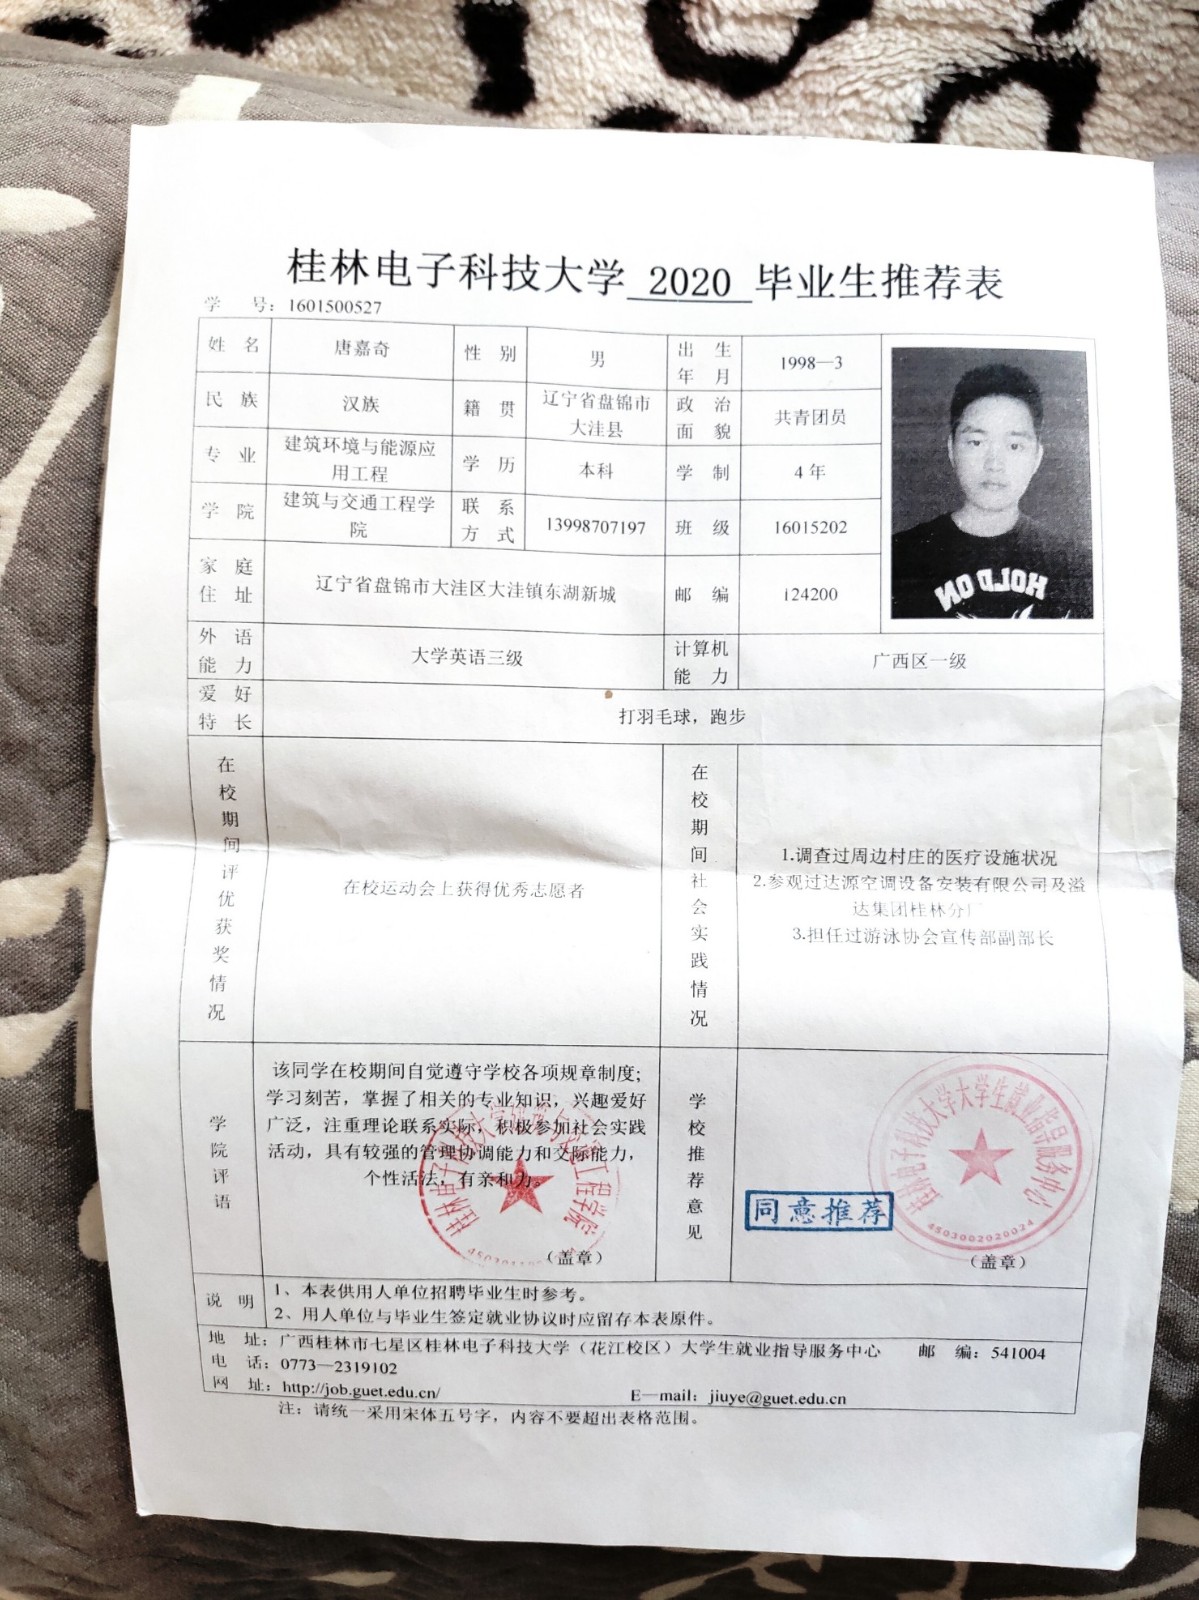 桂林电子科技大学 2020 毕业生推荐表
学 号：1601500527
姓 名 唐嘉奇 性 别 男 出 生 年 月 1998—3
民 族 汉族 籍 贯 辽宁省盘锦市大洼县 政 治 面 貌 共青团员
专 业 建筑环境与能源应用工程 学 历 本科 学 制 4 年
学 院 建筑与交通工程学院 联 系 方 式 13998707197 班 级 16015202
家 庭 住 址 辽宁省盘锦市大洼区大洼镇东湖新城 邮 编 124200
外 语 能 力 大学英语三级 计算机能 力 广西区一级
爱 好 特 长 打羽毛球，跑步
HOLD ON
在校期间评优获奖情况
在校运动会上获得优秀志愿者
在校期间社会实践情况
1.调查过周边村庄的医疗设施状况
2.参观过达源空调设备安装有限公司及溢
达集团桂林分厂
3.担任过游泳协会宣传部副部长
学院评语
该同学在校期间自觉遵守学校各项规章制度；
学习刻苦，掌握了相关的专业知识，兴趣爱好
广泛，注重理论联系实际，积极参加社会实践
活动，具有较强的管理协调能力和交际能力，
个性活泼，有亲和力。
（盖章）
学校推荐意见
桂林电子科技大学大学生就业指导服务中心
4503002020024
同意推荐
（盖章）
说 明
1、本表供用人单位招聘毕业生时参考。
2、用人单位与毕业生签定就业协议时应留存本表原件。
地 址：广西桂林市七星区桂林电子科技大学（花江校区）大学生就业指导服务中心 邮 编：541004
电 话：0773—2319102
网 址：http://job.guet.edu.cn/ E—mail：jiuye@guet.edu.cn
注：请统一采用宋体五号字，内容不要超出表格范围。